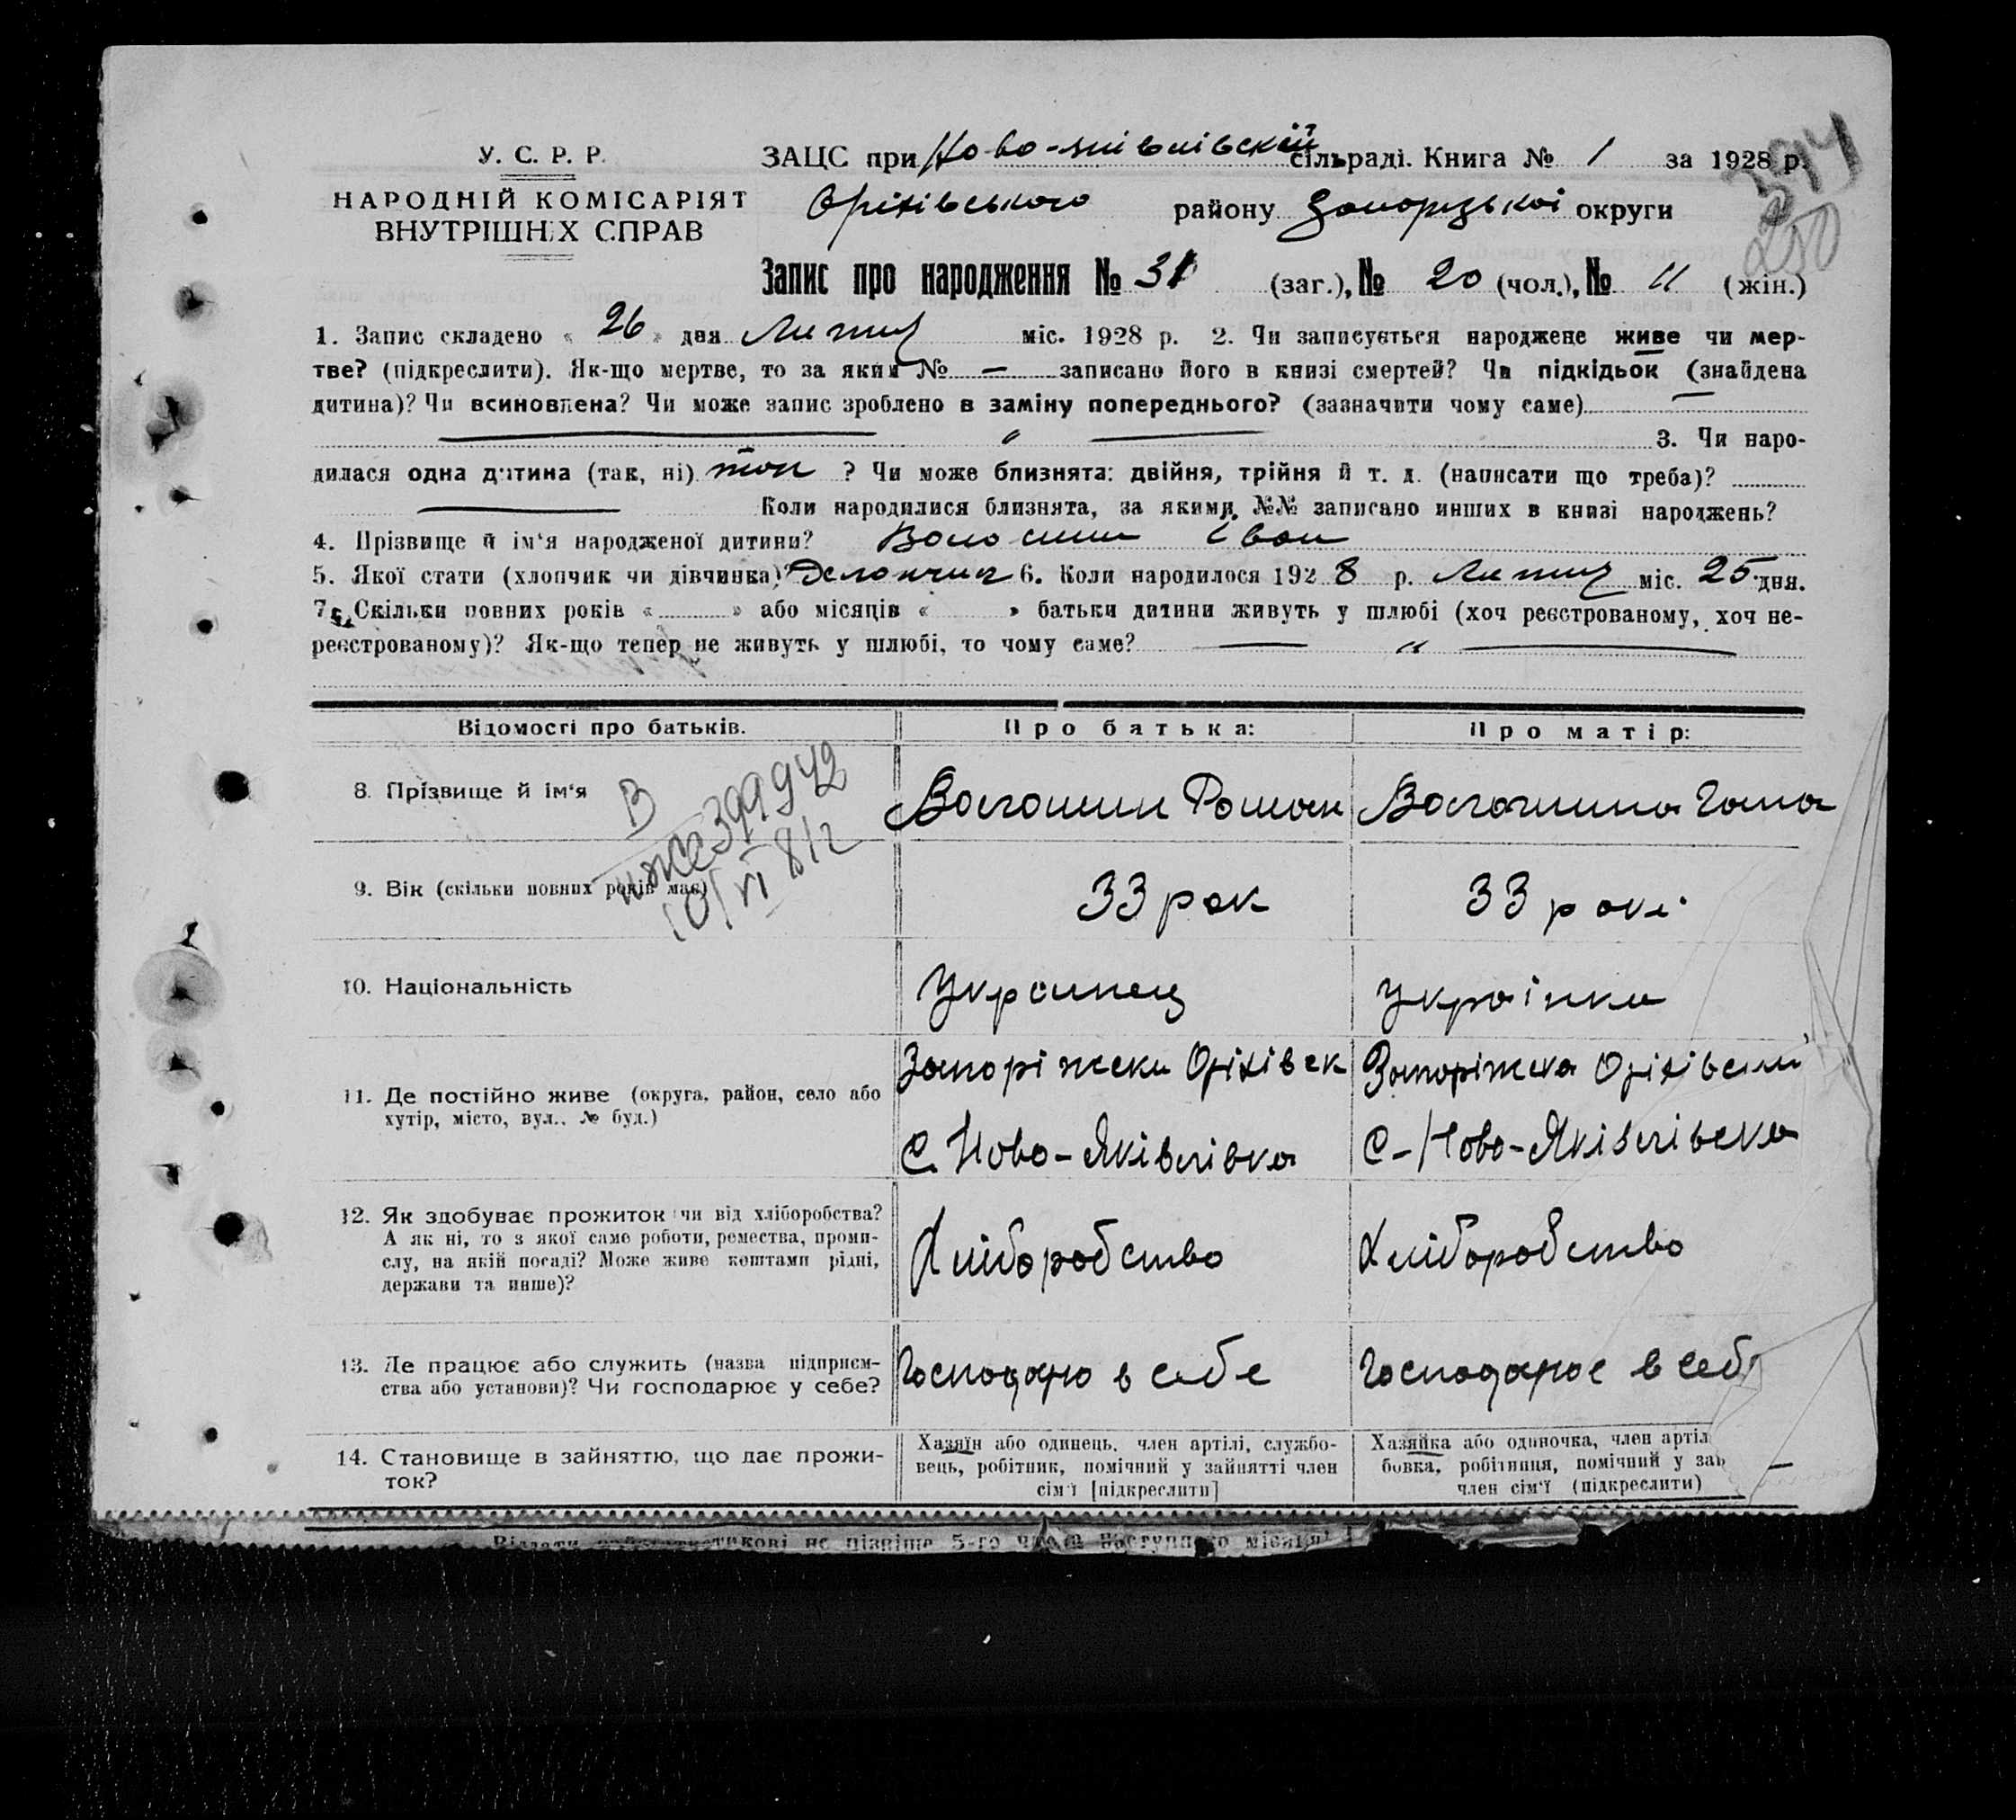 У. С. Р. Р.
НАРОДНІЙ КОМІСАРІЯТ
ВНУТРІШНІХ СПРАВ
ЗАЦС при Ново- сільраді. Книга № 1 за 1928 р.
Оріхівського району округи
250
Запис про народження № 31 (заг.), № 20 (чол.), № 11 (жін.)
1. Запис складено « 26 » дня міс. 1928 р. 2. Чи записується народжене живе чи мер-
тве? (підкреслити). Як-що мертве, то за яким № — записано його в книзі смертей? Чи підкідьок (знайдена
дитина)? Чи всиновлена? Чи може запис зроблено в заміну попереднього? (зазначити чому саме) —
— " — 3. Чи наро-
дилася одна дитина (так, ні) так ? Чи може близнята: двійня, трійня й т. д. (написати що треба)?
— Коли народилися близнята, за якими №№ записано инших в книзі народжень?
4. Прізвище й ім'я народженої дитини? Волошин Іван
5. Якої стати (хлопчик чи дівчинка)? 6. Коли народилося 1928 р. міс. 25 дня.
7. Скільки повних років « » або місяців « » батьки дитини живуть у шлюбі (хоч реєстрованому, хоч не-
реєстрованому)? Як-що тепер не живуть у шлюбі, то чому саме? — " —
Відомості про батьків. Про батька: Про матір:
8. Прізвище й ім'я Волошин Роман Волошина Ганна
В
399942
9. Вік (скільки повних років має) 33 рок 33 роки
10. Національність Украинец українка
11. Де постійно живе (округа, район, село або
хутір, місто, вул., № буд.)
Оріхівск
С. Ново-Яківлівка С-Ново-Яківлівска
12. Як здобуває прожиток чи від хліборобства?
А як ні, то з якої саме роботи, ремества, проми-
слу, на якій посаді? Може живе коштами рідні,
держави та инше)?
Хліборобство Хліборобство
13. Де працює або служить (назва підприєм-
ства або установи)? Чи господарює у себе?
Господарю в себе Господарює в себ
14. Становище в зайняттю, що дає прожи-
ток?
Хазяїн або одинець, член артілі, службо-
вець, робітник, помічний у зайнятті член
сім'ї [підкреслити]
Хазяйка або одиночка, член артіл
бовка, робітниця, помічний у зай
член сім'ї (підкреслити)
не пізніше 5-го числа наступного місяця!